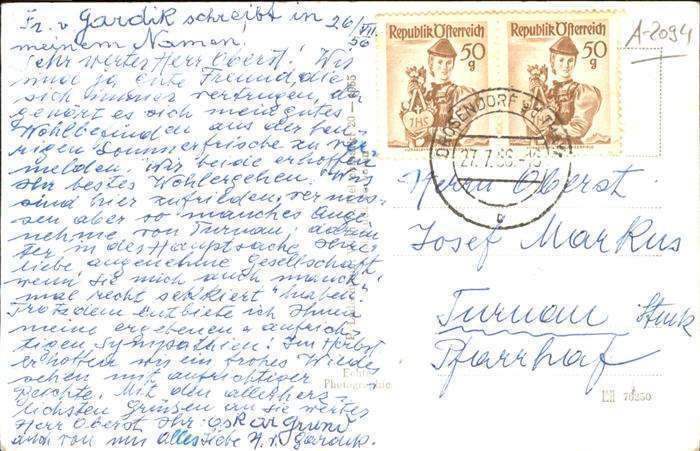 Fr. v. Gardik schreibt in 26/VII.
meinem Namen! 56
Sehr werter Herr Oberst! Wir
sind ja gute Freunde, die
sich immer vertrugen, da
gehört es sich mein gutes
Wohlbefinden aus der heu-
rigen Sommerfrische zu ver-
melden. Wir beide erhoffen
Ihr bestes Wohlergehen. Wir
sind hier zufrieden, vermis-
sen aber so manches Ange-
nehme von Turnau, darun-
ter in der Hauptsache Ihre
liebe, angenehme Gesellschaft
wenn Sie mich auch manch-
mal recht sekkiert haben.
Trotzdem entbiete ich Ihnen
meine ergebenen + aufrich-
tigen Sympathien! Im Herbst
erhoffen wir ein frohes Wieder-
sehen mit aufrichtiger
Mit den allerherz-
lichsten Grüssen an Sie wertes
Herr Oberst Ihr Oskar Grund
auch von mir alles liebe H. v. Gardik.
Republik Österreich
50
g
Republik Österreich
50
g
DROSENDORF
27.7.56
A-2094
Herrn Oberst
Josef Markus
Turnau Stmk
Pfarrhof
Echte
Photographie